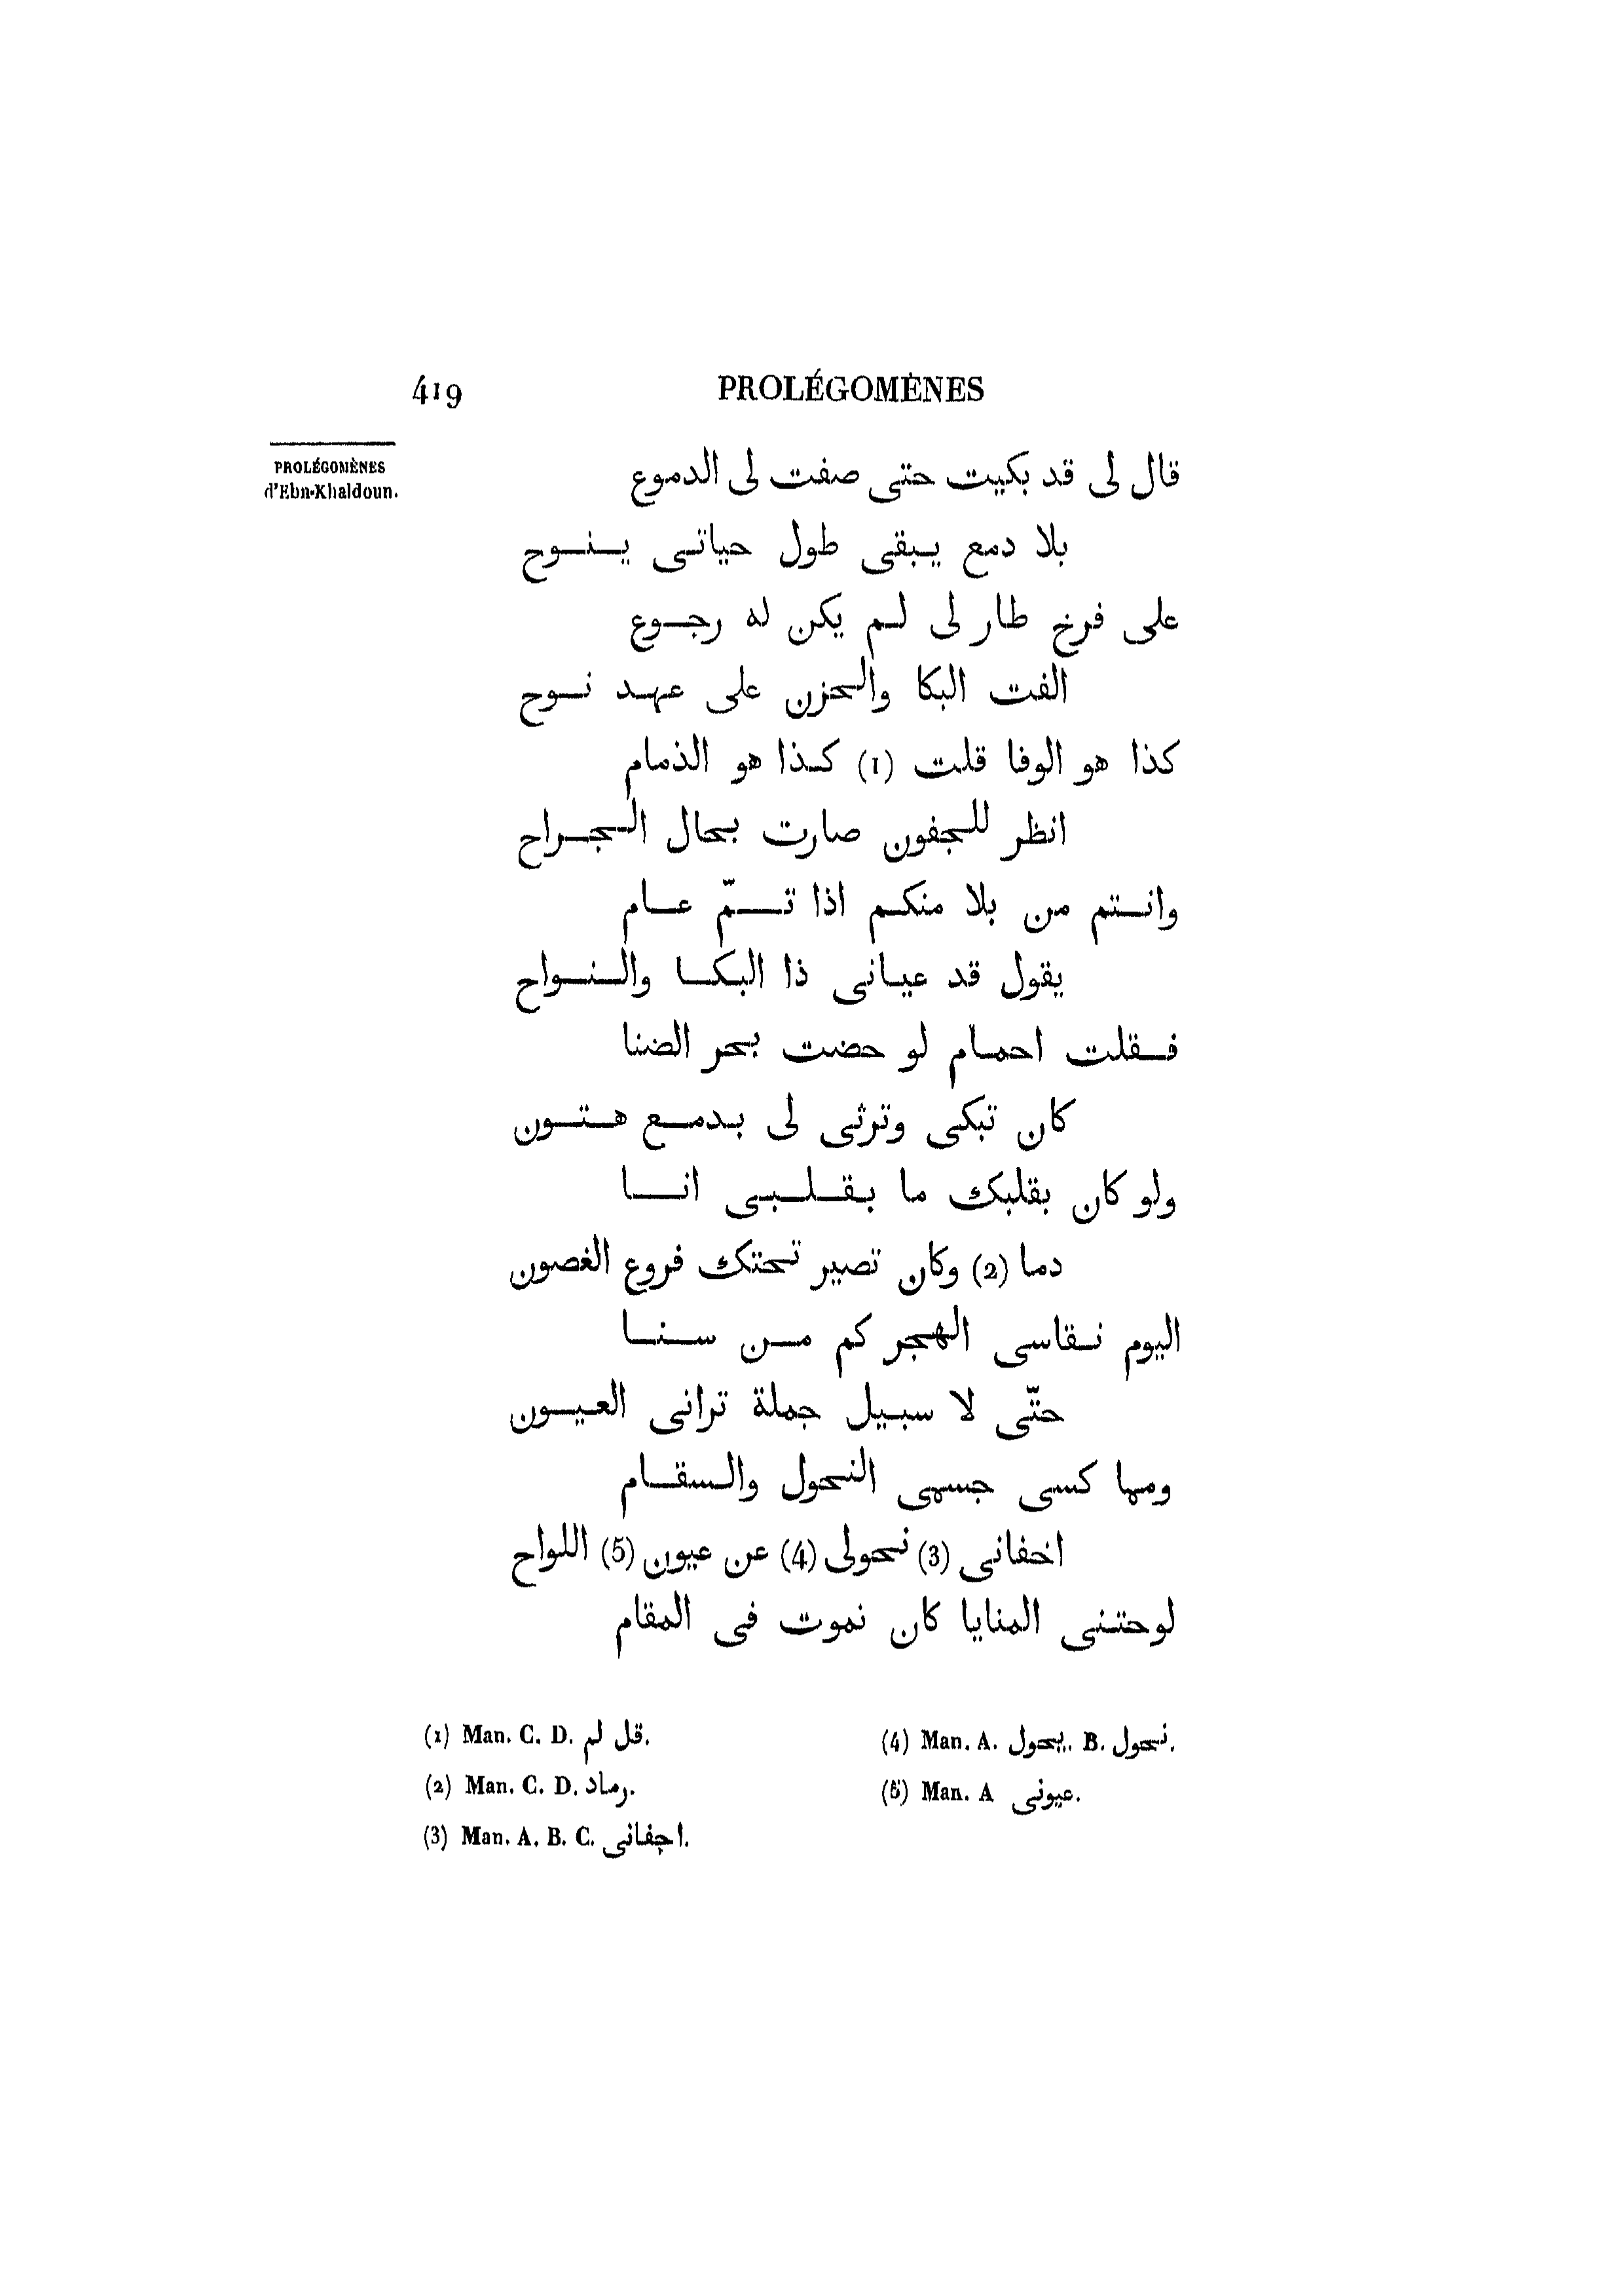 419
PROLÉGOMÈNES
PROLÉGOMÈNES
d'Ebn-Khaldoun.
قال لى قد بكيت حتى صفت لى الدموع
بلا دمع يبقى طول حياتى ينوح
على فرخ طار لى لم يكن له رجوع
الفت البكا والحزن على عهد نوح
كذا هو الوفا قلت (1) كذا هو الذمام
انظر للجفون صارت بحال الجراح
وانتم من بلا منكم اذا تمّ عام
يقول قد عيانى ذا البكا والنواح
فقلت احمام لو حضت بحر الضنا
كان تبكى وترثى لى بدمع هتون
ولو كان بقلبك ما بقلبى انا
دما (2) وكان تصير تحتك فروع الغصون
اليوم نقاسى الهجر كم من سنا
حتّى لا سبيل جملة ترانى العيون
ومما كسى جسمى النحول والسقام
اخفانى (3) نحولى (4) عن عيون (5) اللواح
لوحتنى المنايا كان نموت فى المقام
(1) Man. C. D. قل لم.
(2) Man. C. D. رماد.
(3) Man. A. B. C. اجفانى.
(4) Man. A. يحول. B. نحول.
(5) Man. A عيونى.